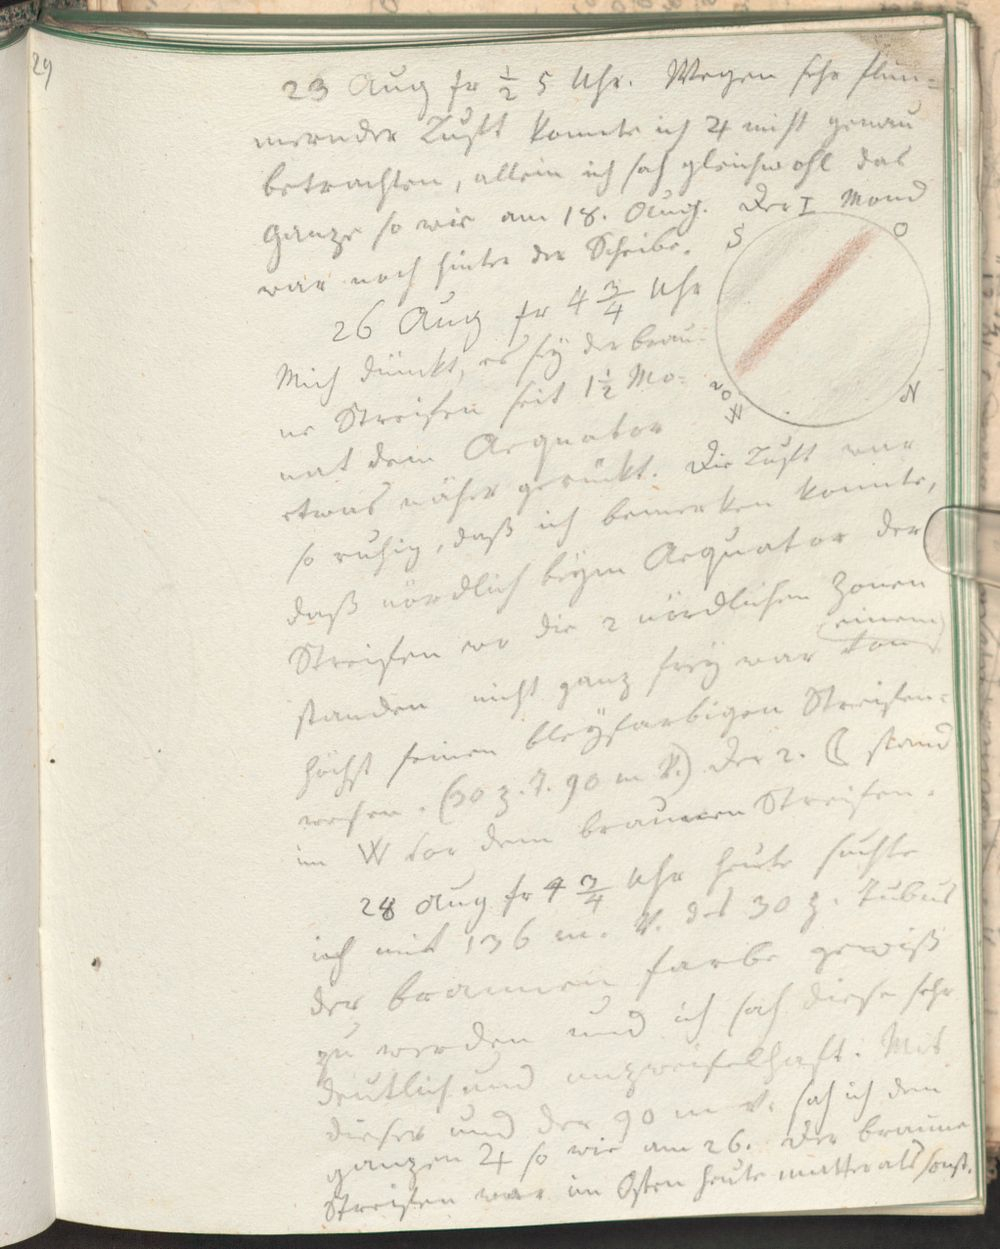 29
23 Aug fr ½ 5 Uhr. Wegen sehr flim-
mernder Luft konnte ich ♃ nicht genau
betrachten, allein ich sah gleichwohl das
Ganze so wie am 18. Aug. Der I Mond
war noch hinter der Scheibe.
S O
26 Aug fr 4 3/4 Uhr
Mich dünckt, es sey der brau-
ne Streifen seit 1½ Mo-
nat dem Aequator
2 W N
etwas näher gerückt. Die Luft war
so ruhig, daß ich bemerken konnte,
daß nördlich beym Aequator der
Streifen wo die 2 nördlichen Zonen
standen nicht ganz frey war von
einem
höchst feinen bleyfarbigen Streifen-
wesen. (30 z. T. 90 m V.) Der 2. ☾ stand
im W vor dem braunen Streifen.
28 Aug fr 4 3/4 Uhr heute suchte
ich mit 136 m. V. des 30 z. Tubus
der braunen farbe gewiß
zu werden und ich sah diese sehr
deutlich und unzweifelhaft. Mit
dieser und der 90 m V. sah ich den
ganzen ♃ so wie am 26. Der braune
Streifen war im Osten heute matter als sonst.